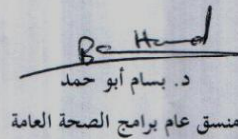 د. بسام أبو حمد
منسق عام برامج الصحة العامة